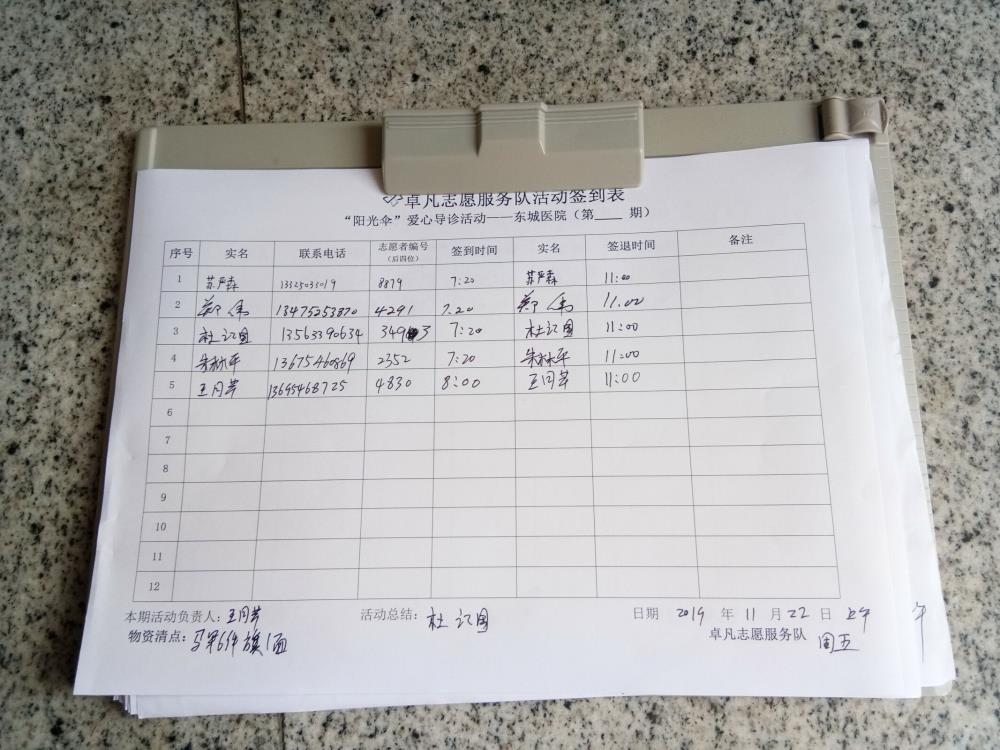 卓凡志愿服务队活动签到表
“阳光伞”爱心导诊活动——东城医院（第____期）
序号 实名 联系电话 志愿者编号（后四位） 签到时间 实名 签退时间 备注
1 苏严森 13325033019 8879 7:20 苏严森 11:00
2 郑伟 13475253870 4291 7.20 郑伟 11.00
3 杜记国 13563390634 349 3 7:20 杜记国 11:00
4 朱林平 13675460869 2352 7:20 朱林平 11:00
5 王同芬 13695468725 4830 8:00 王同芬 11:00
6
7
8
9
10
11
12
本期活动负责人：王同芬 活动总结：杜记国 日期 2019 年 11 月 22 日 上午
物资清点：马甲6件 旗1面 卓凡志愿服务队 周五
午